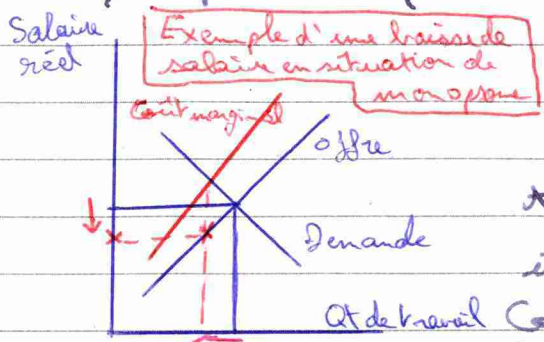 Salaire
réel
Exemple d'une baisse de
salaire en situation de
monopsone
Coût marginal
offre
Demande
Qt de travail